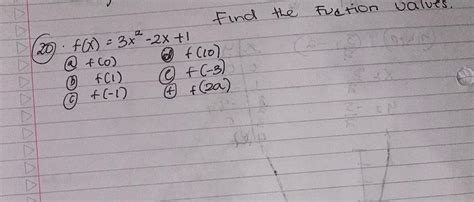 Find the Fuction values.
(20). f(x) = 3x² - 2x + 1
(a) f(0)
(b) f(1)
(c) f(-1)
(d) f(10)
(e) f(-3)
(f) f(2a)